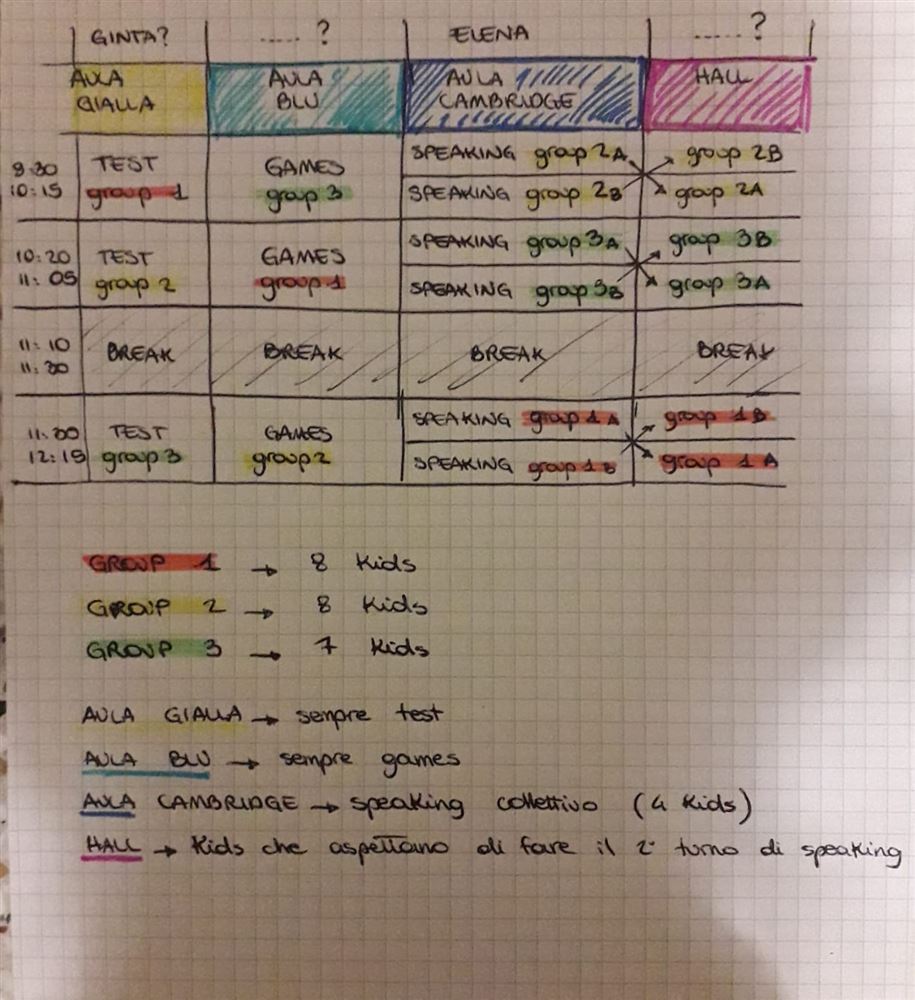 GINTA? ..... ? ELENA ..... ?
AULA GIALLA AULA BLU AULA CAMBRIDGE HALL
9:30 10:15 TEST group 1 GAMES group 3 SPEAKING group 2A group 2B
SPEAKING group 2B group 2A
10:20 11:05 TEST group 2 GAMES group 1 SPEAKING group 3A group 3B
SPEAKING group 3B group 3A
11:10 11:30 BREAK BREAK BREAK BREAK
11:30 12:15 TEST group 3 GAMES group 2 SPEAKING group 1A group 1B
SPEAKING group 1B group 1A
GROUP 1 → 8 Kids
GROUP 2 → 8 Kids
GROUP 3 → 7 Kids
AULA GIALLA → sempre test
AULA BLU → sempre games
AULA CAMBRIDGE → speaking collettivo (4 Kids)
HALL → Kids che aspettano di fare il 2° turno di speaking